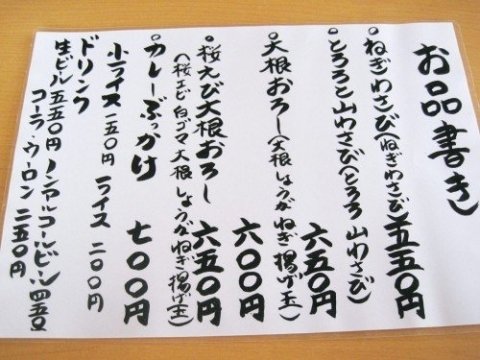 お品書き
・ねぎわさび(ねぎわさび)五五〇円
・とろろと山わさび(とろろ 山わさび)
六五〇円
・大根おろし(大根しょうがねぎ揚げ玉)
六〇〇円
・桜えび大根おろし 六五〇円
(桜エビ白ゴマ大根しょうがねぎ揚げ玉)
・カレーぶっかけ 七〇〇円
小ライス 一五〇円 ライス 二〇〇円
ドリンク
生ビール 五五〇円 ノンアルコールビール 四五〇
コーラ ウーロン 二五〇円